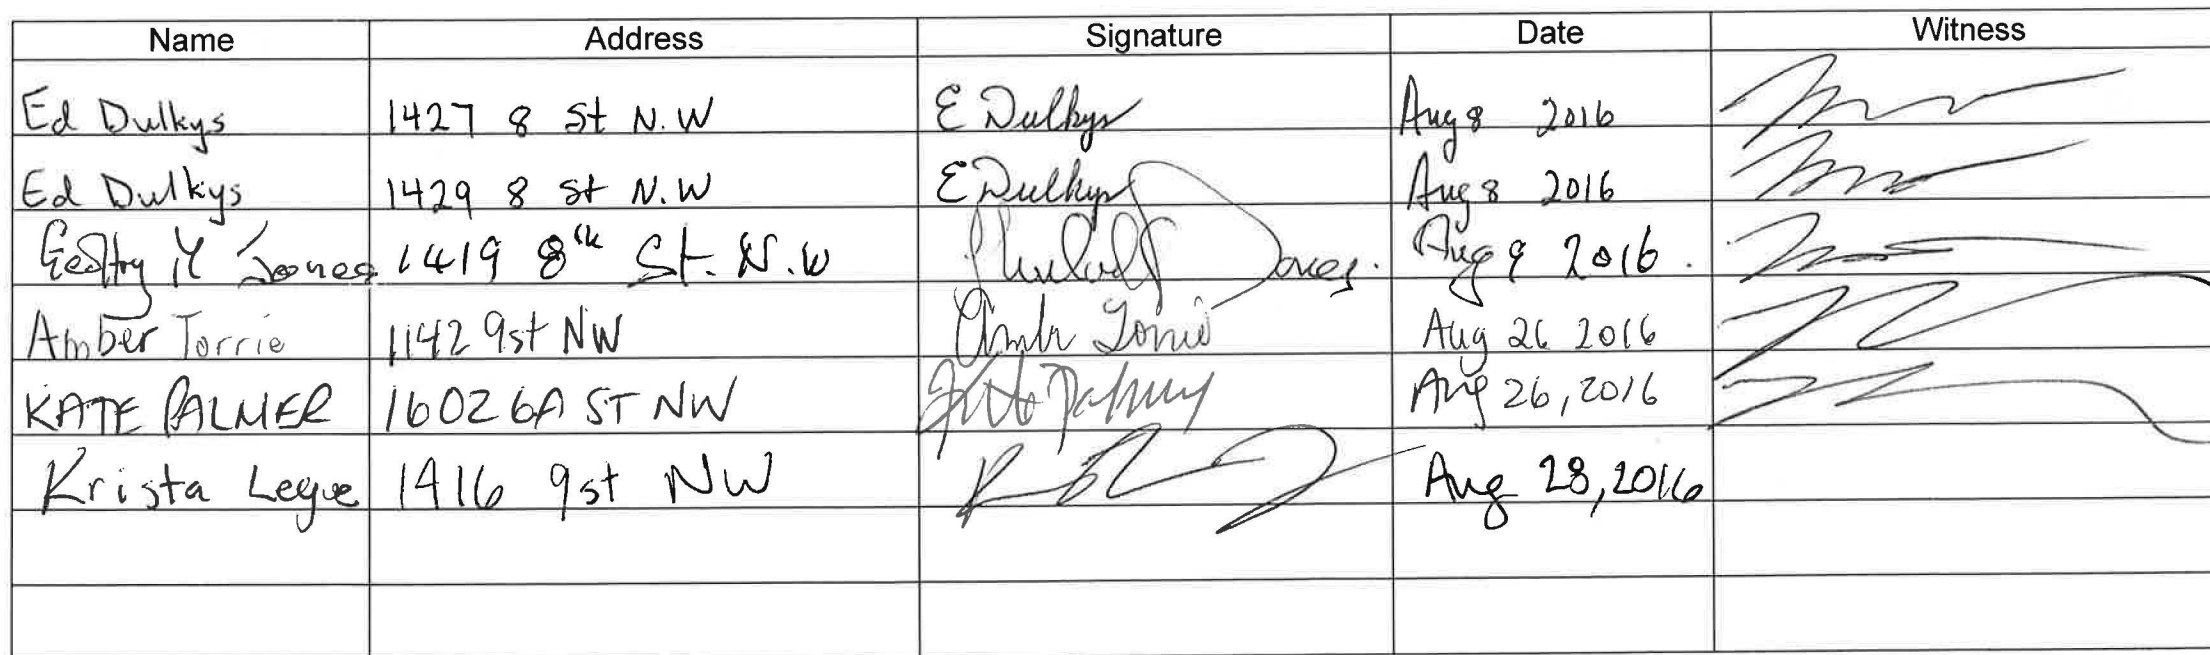 Name Address Signature Date Witness
Ed Dulkys 1427 8 St N.W E Dulkys Aug 8 2016
Ed Dulkys 1429 8 St N.W E Dulkys Aug 8 2016
Jones 1419 8th St. N.W Jones. Aug 9 2016.
Amber Torrie 1142 9st NW Amber Torrie Aug 26 2016
KATE PALMER 1602 6A ST NW Kate Palmer Aug 26, 2016
Krista Legue 1416 9st NW Aug 28, 2016